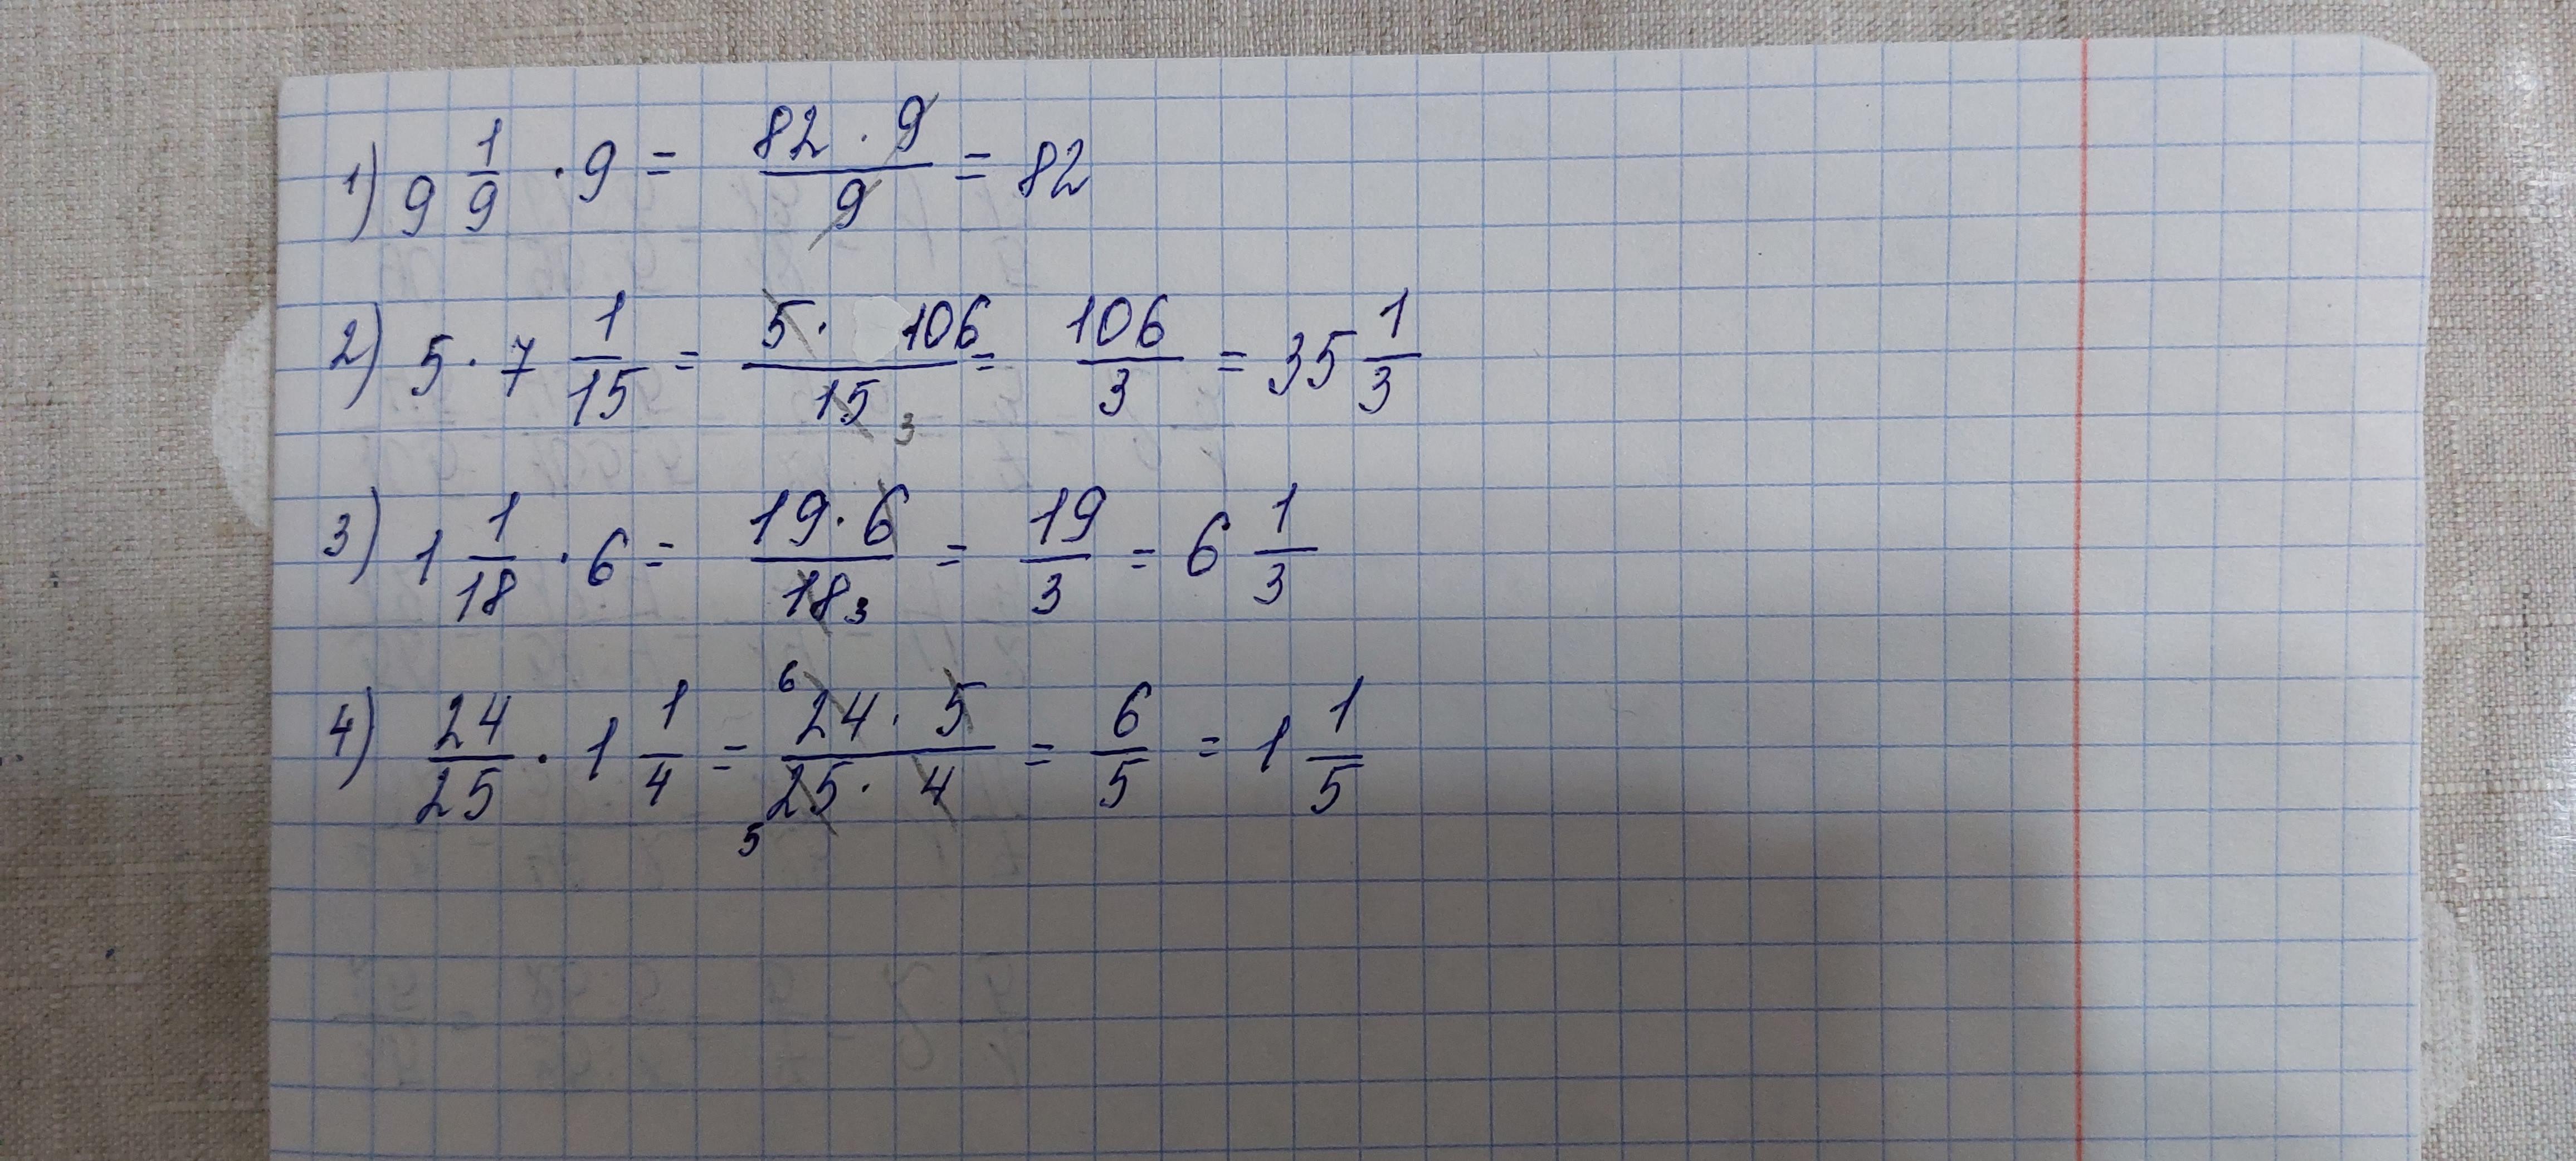 1) 9 1/9 · 9 = 82 · 9 / 9 = 82
2) 5 · 7 1/15 = 5 · 106 / 15 3 = 106/3 = 35 1/3
3) 1 1/18 · 6 = 19 · 6 / 18 3 = 19/3 = 6 1/3
4) 24/25 · 1 1/4 = 6 24 · 5 / 5 25 · 4 = 6/5 = 1 1/5